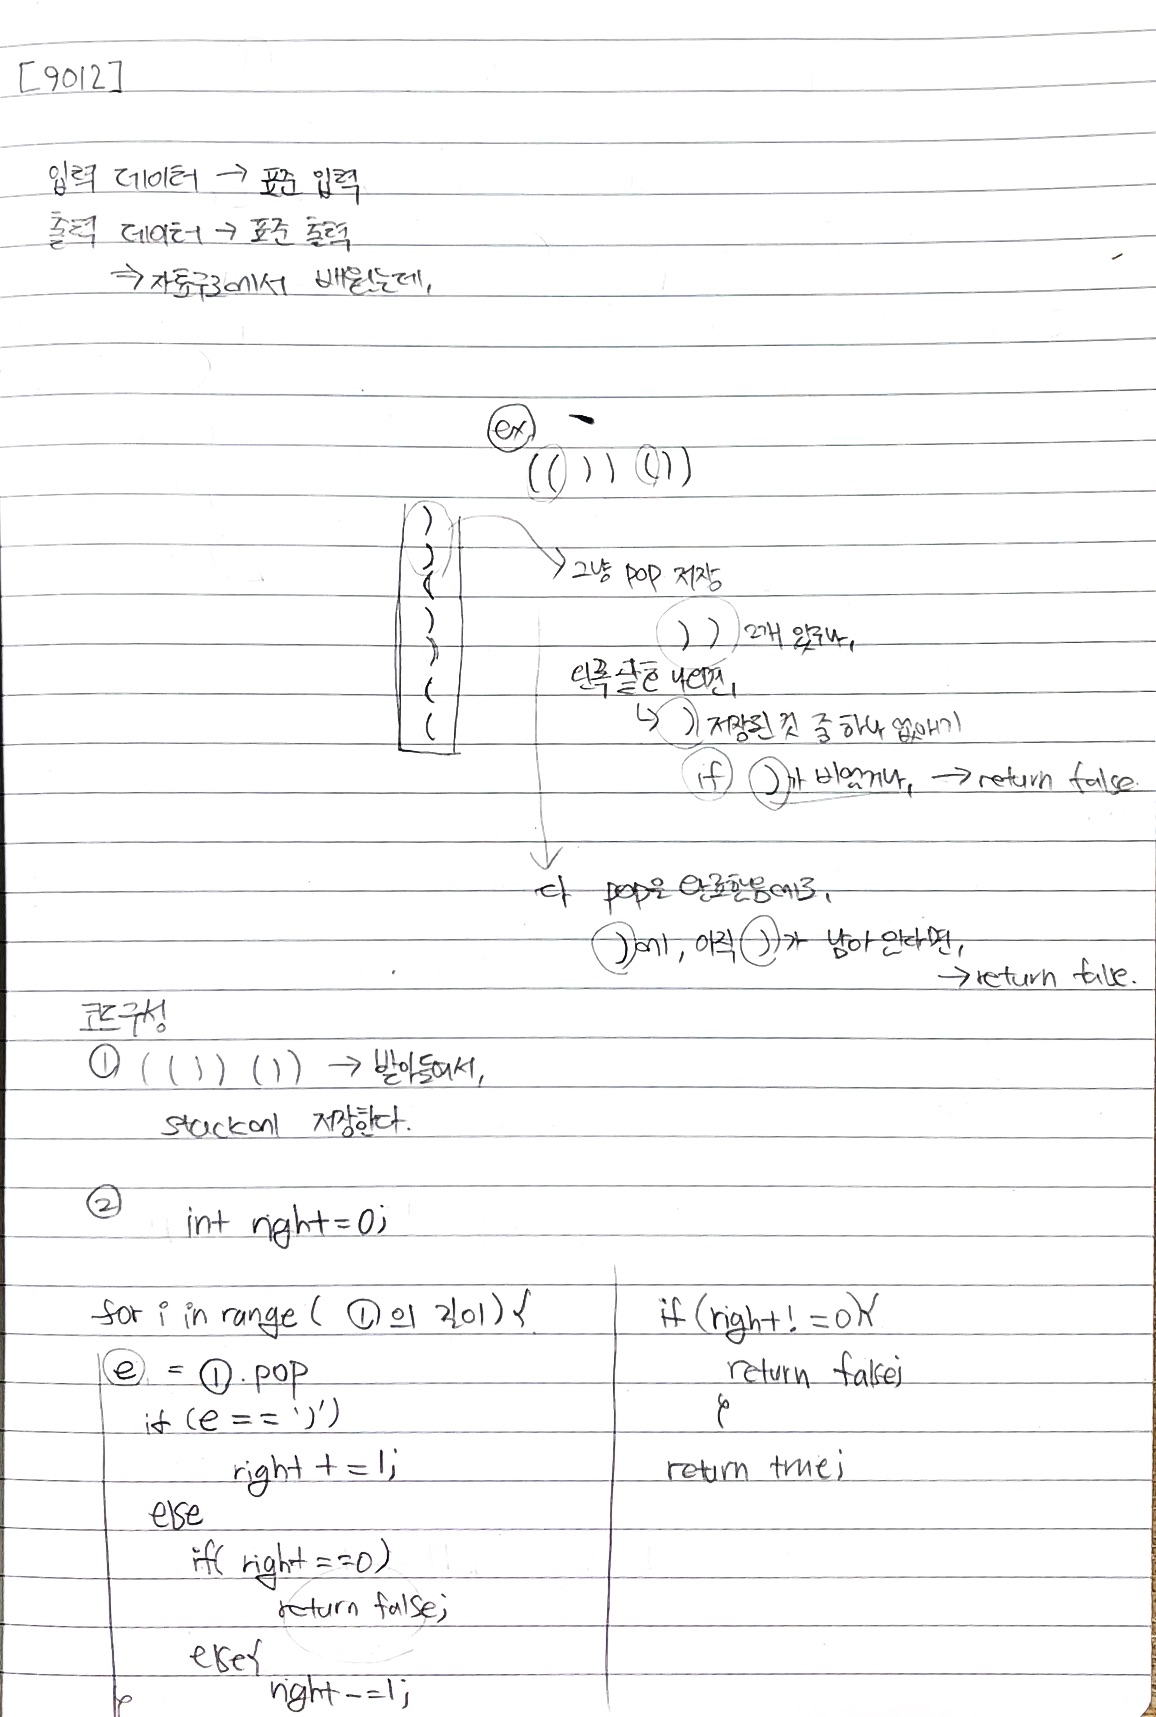 [9012]
입력 데이터 → 표준 입력
출력 데이터 → 표준 출력
⇒ 자료구조에서 배웠는데,
ex)
(())())
)
)
(
)
)
(
(
→ 그냥 pop 저장
)) 2개 있구나,
왼쪽 나오면,
↳ ) 저장된 것 중 하나 없애기
if )가 비었거나, → return false.
다 pop은 완료했음에도,
)에, 아직 )가 남아 있다면,
→ return false.
코드구성
① (())()) → 받아들여서,
stack에 저장한다.
②
int right=0;
for i in range( ①의 길이){
e = ①.pop
if (e == ')')
right += 1;
else
if( right==0)
return false;
else{
right -=1;
}
if (right! =0){
return false;
}
return true;